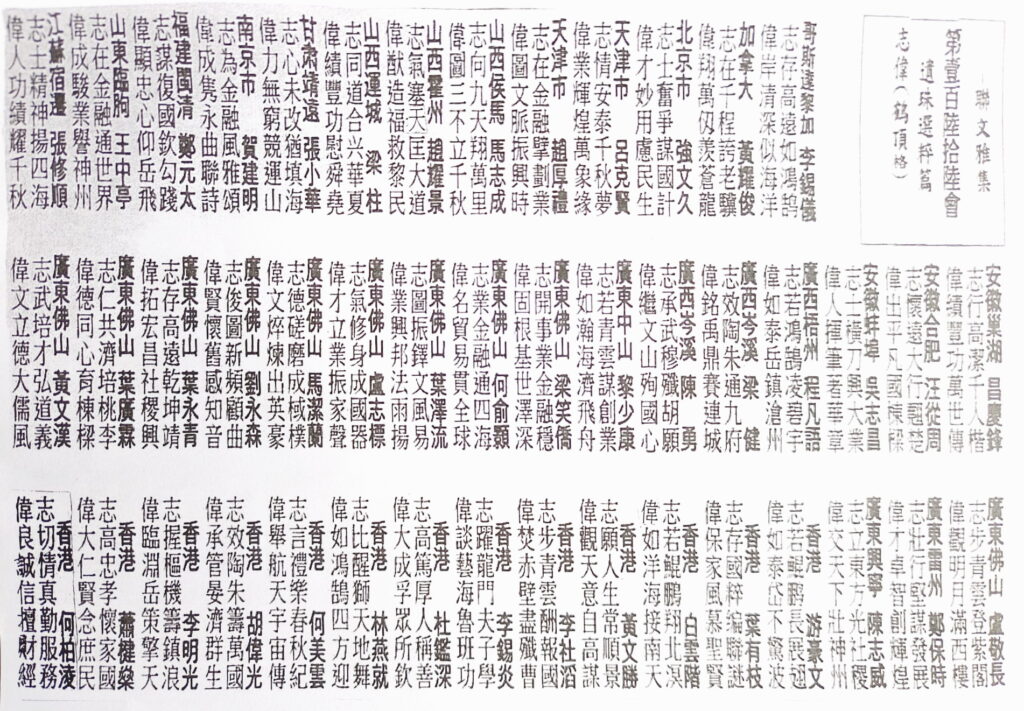 聯文雅集
第壹百陸拾陸會
遺珠選粹篇
志偉(鶴頂格)
哥斯達黎加 李錫儀
志存高遠如鴻鵠
偉岸清深似海洋
加拿大 黃耀俊
志在千程誇老驥
偉翔萬仞羨蒼龍
北京市 強文久
志士奮爭謀國計
偉才妙用慮民生
天津市 呂克賢
志情安泰千秋夢
偉業輝煌萬象緣
天津市 趙厚禮
志在金融擘劃業
偉圖文脈振興時
山西侯馬 馬志成
志向九天翔萬里
偉圖三不立千秋
山西霍州 趙耀景
志氣塞天匡大道
偉猷造福救黎民
山西運城 梁柱
志同道合兴華夏
偉績豐功慰舜堯
甘肅靖遠 張小華
志心未改猶填海
偉力無窮競連山
南京市 賀建明
志為金融風雅頌
偉成雋永曲聯詩
福建閩清 鄭元太
志謀復國欽勾踐
偉顯忠心仰岳飛
山東臨朐 王中亭
志在金融通世界
偉成駿業譽神州
江蘇宿遷 張修順
志士精神揚四海
偉人功績耀千秋
安徽巢湖 昌慶鋒
志行高潔千人楷
偉績豐功萬世傳
安徽合肥 汪從周
志懷遠大行翹楚
偉出平凡國棟樑
安徽蚌埠 吳志昌
志士橫刀興大業
偉人揮筆著華章
廣西梧州 程凡語
志若鴻鵠凌碧宇
偉如泰岳鎮滄州
廣西岑溪 梁健
志效陶朱通九府
偉銘禹鼎賽連城
廣西岑溪 陳勇
志承武穆殲胡願
偉繼文山殉國心
廣東中山 黎少康
志若青雲謀創業
偉如瀚海濟飛舟
廣東佛山 梁笑僑
志開事業金融穩
偉固根基世澤深
廣東佛山 何俞顥
志業金融通四海
偉名貿易貫全球
廣東佛山 葉澤流
志圖振鐸文風易
偉業興邦法雨揚
廣東佛山 盧志標
志氣修身成國器
偉才立業振家聲
廣東佛山 馬潔蘭
志德磋磨成棫樸
偉文焠煉出英豪
廣東佛山 劉永森
志俊圖新頻顧曲
偉賢懷舊感知音
廣東佛山 葉永青
志存高遠乾坤靖
偉拓宏昌社稷興
廣東佛山 葉廣霖
志仁共濟培桃李
偉德同心育棟樑
廣東佛山 黃文漢
志武培才弘道義
偉文立德大儒風
廣東佛山 盧敬長
志步青雲登紫閣
偉觀明月滿西樓
廣東雷州 鄭保時
志壯行堅謀發展
偉才卓智創輝煌
廣東興寧 陳志威
志立東方光社稷
偉交天下壯神州
香港 游豪文
志若鯤鵬長展翅
偉如泰岱不驚波
香港 葉有枝
志存國粹編聯謎
偉保家風慕聖賢
香港 白雲階
志若鯤鵬翔北溟
偉如洋海接南天
香港 黃文勝
志願人生常順景
偉觀天意自高謀
香港 李杜滔
志步青雲酬報國
偉焚赤壁盡殲曹
香港 李錫炎
志躍龍門夫子學
偉談藝海魯班功
香港 杜鑑深
志高篤厚人稱善
偉大成孚眾所欽
香港 林燕就
志比醒獅天地舞
偉如鴻鵠四方迎
香港 何美雲
志言禮樂春秋紀
偉舉航天宇宙傳
香港 胡偉光
志效陶朱籌萬國
偉承管晏濟群生
香港 李明光
志握樞機籌浪頂
偉臨淵岳策擎天
香港 蕭健燊
志高忠孝懷家國
偉大仁賢念庶民
香港 何柏淩
志切情真勤服務
偉良誠信擅財經